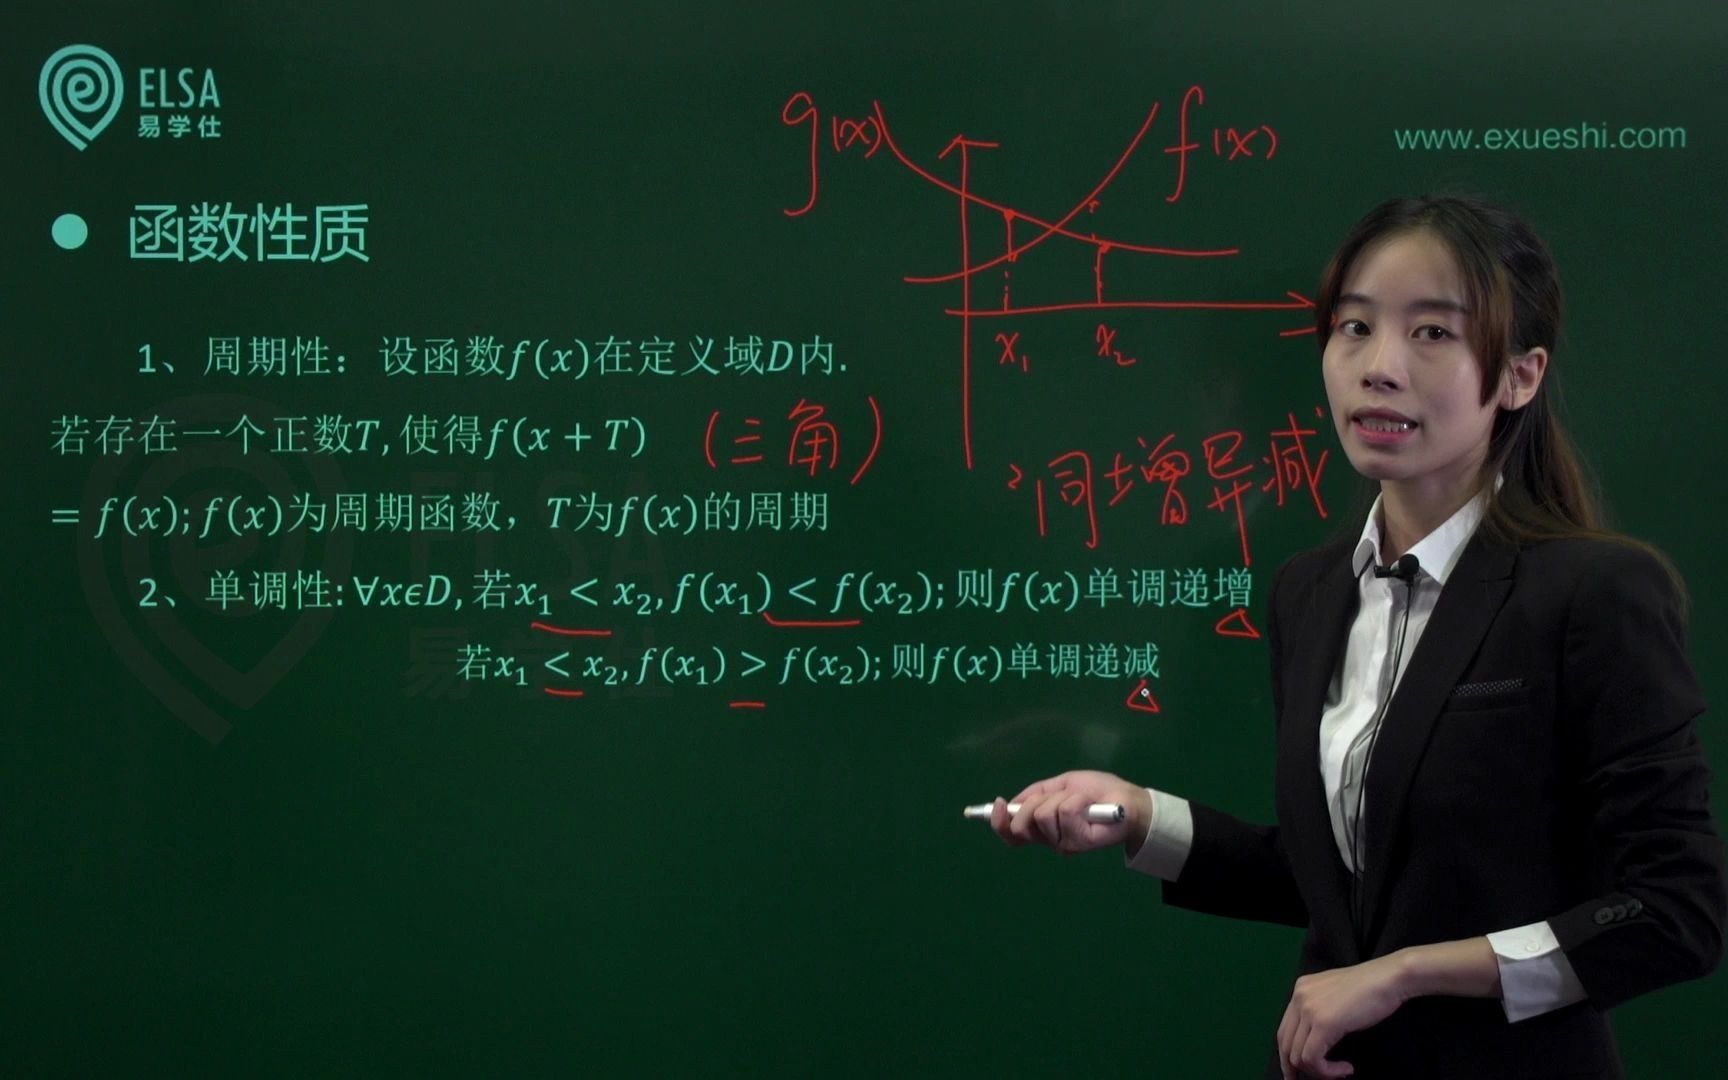 ELSA
易学仕
www.exueshi.com
g(x)
f(x)
● 函数性质
x₁ x₂
1、周期性：设函数f(x)在定义域D内.
若存在一个正数T,使得f(x + T) (三角)
= f(x); f(x)为周期函数，T为f(x)的周期
同增异减
2、单调性: ∀xϵD, 若x₁ < x₂, f(x₁) < f(x₂); 则f(x)单调递增
若x₁ < x₂, f(x₁) > f(x₂); 则f(x)单调递减
ELSA
易学仕